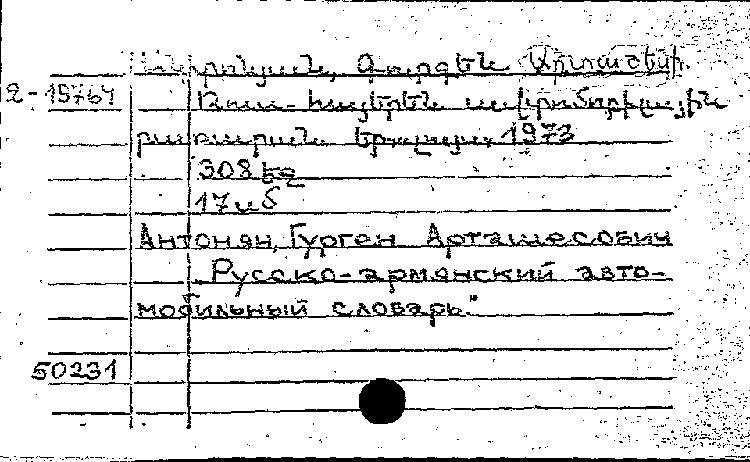 Անտոնյան, Գուրգեն Արտաշեսի.
2-15764 Ռուս-հայերեն ավտոմոբիլային
բառարան. Երևան, 1973
308 էջ
17 սմ
Антонян, Гурген Арташесович
"Русско-армянский авто-
мобильный словарь."
50231